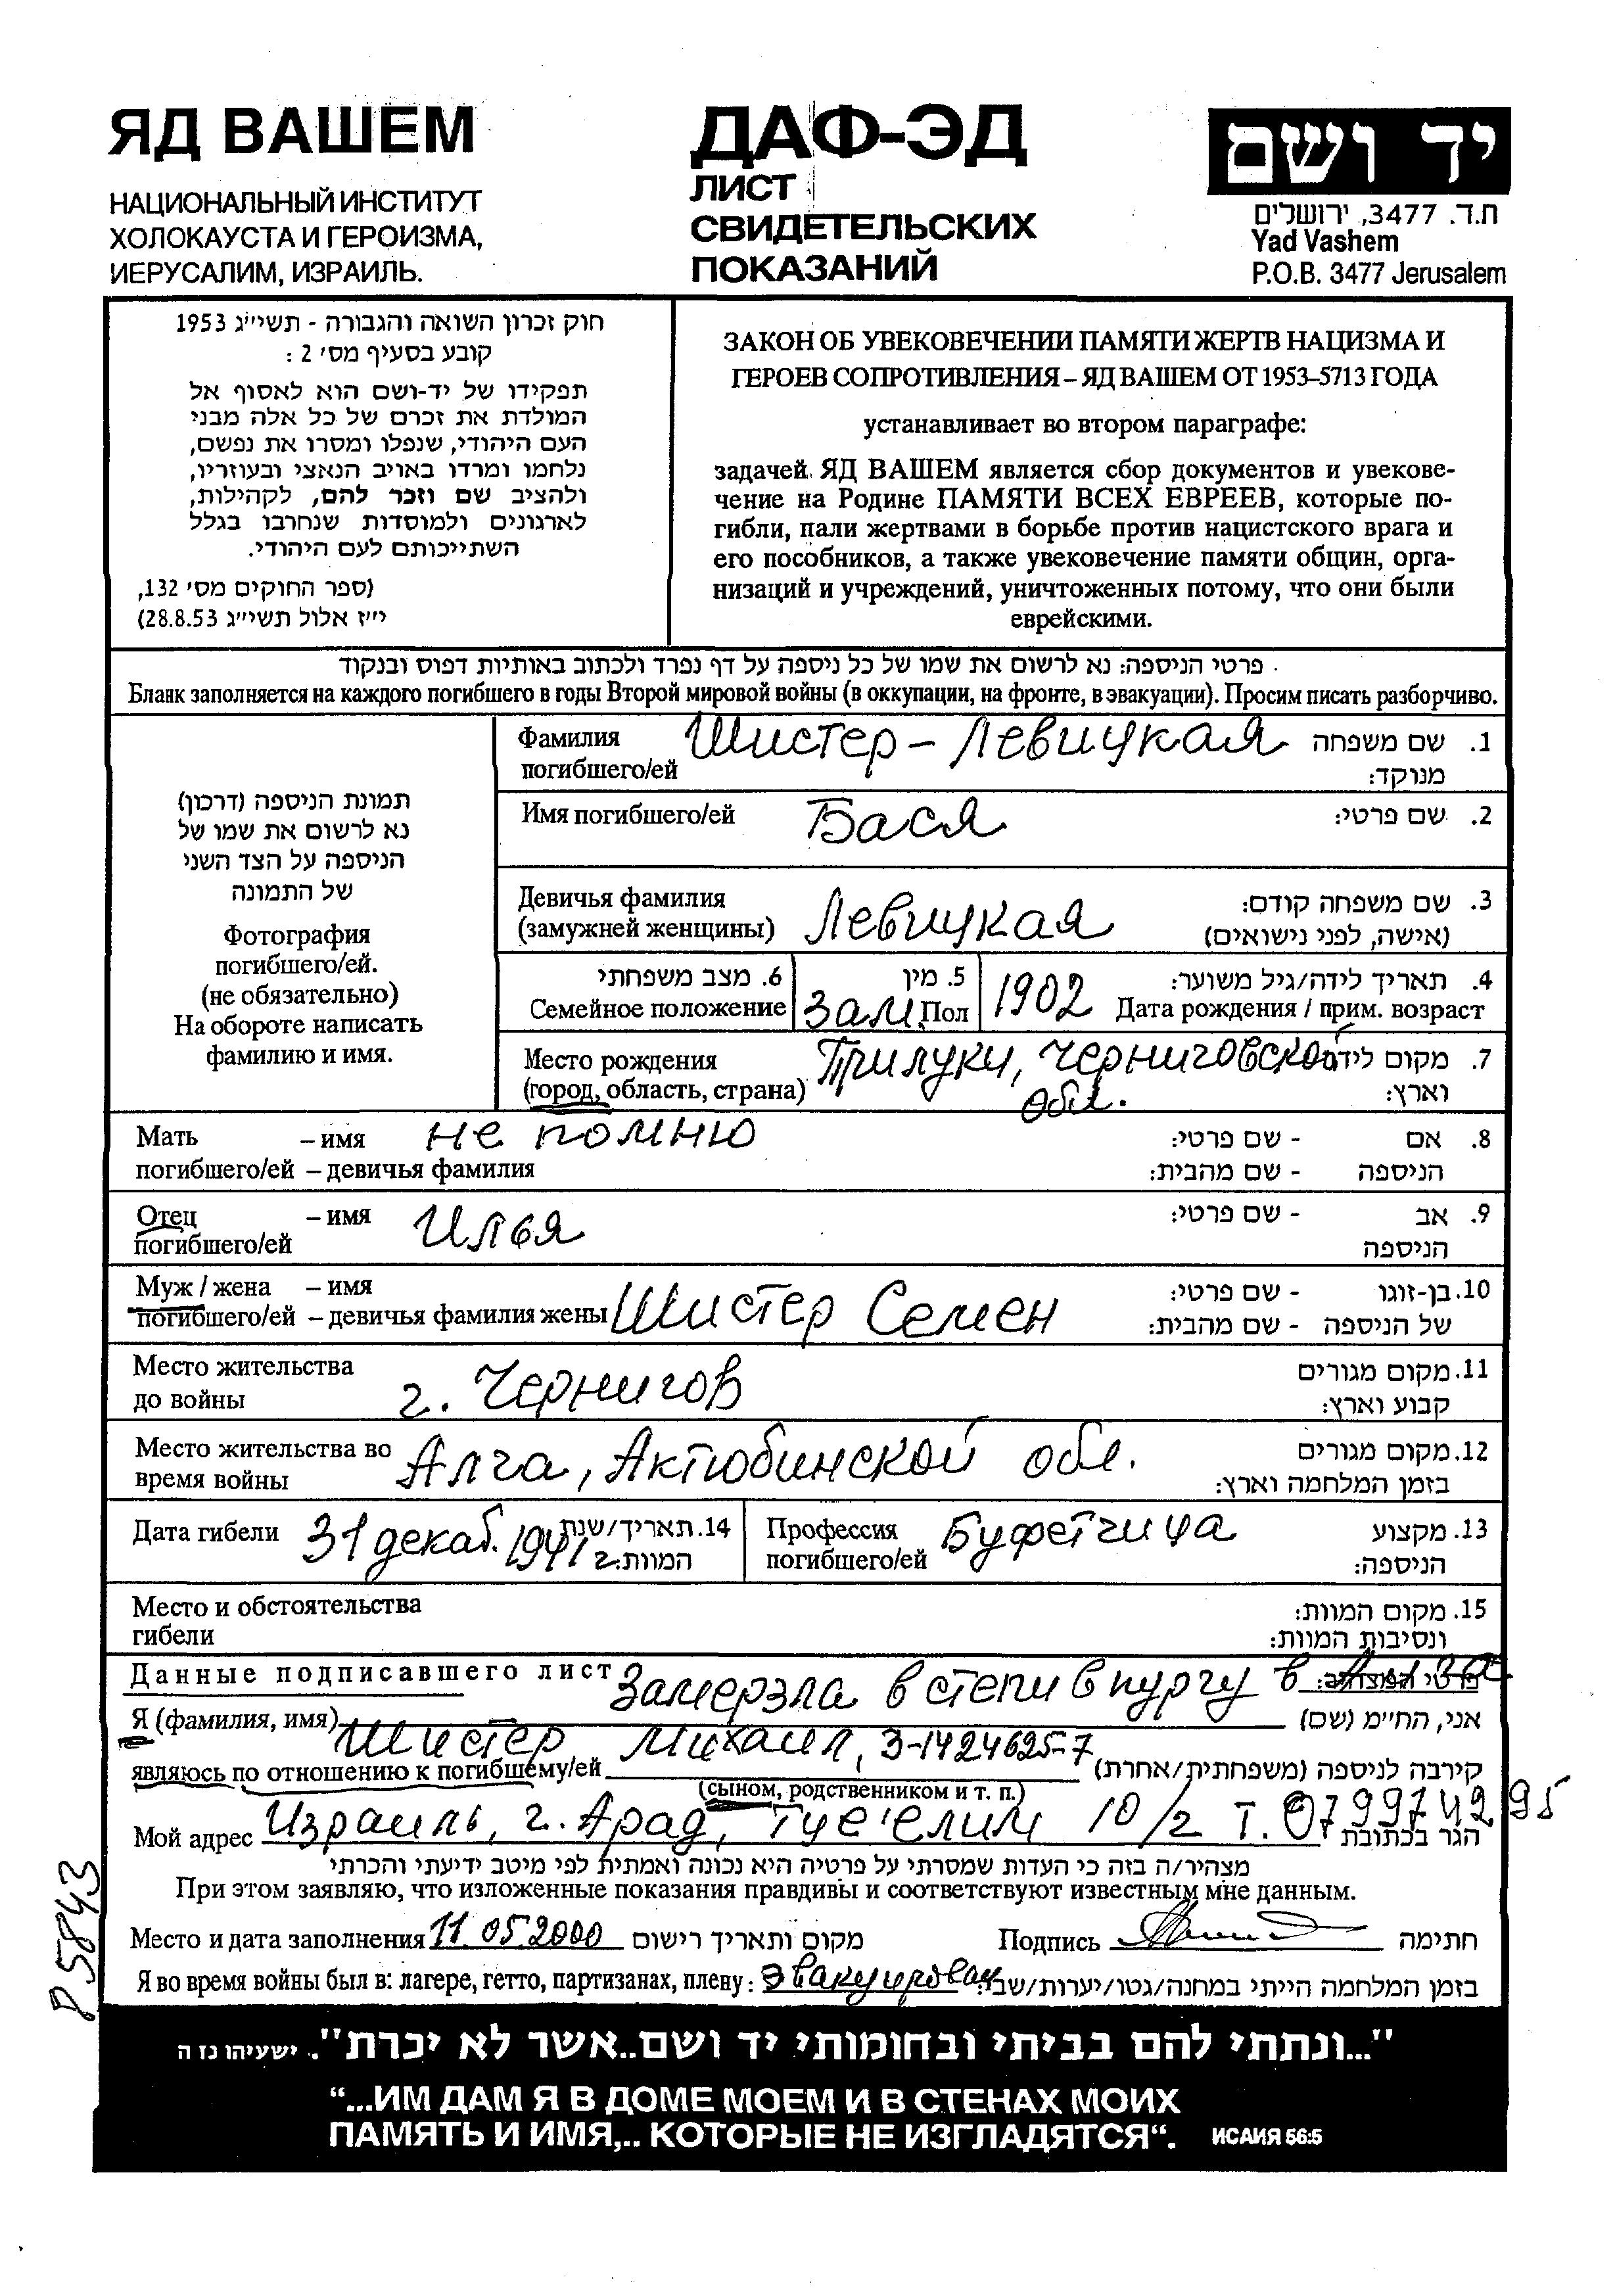 ЯД ВАШЕМ
НАЦИОНАЛЬНЫЙ ИНСТИТУТ
ХОЛОКАУСТА И ГЕРОИЗМА,
ИЕРУСАЛИМ, ИЗРАИЛЬ.
ДАФ-ЭД
ЛИСТ
СВИДЕТЕЛЬСКИХ
ПОКАЗАНИЙ
יד ושם
ת.ד. 3477, ירושלים
Yad Vashem
P.O.B. 3477 Jerusalem
חוק זכרון השואה והגבורה - תשי״ג 1953
קובע בסעיף מס׳ 2 :
תפקידו של יד-ושם הוא לאסוף אל
המולדת את זכרם של כל אלה מבני
העם היהודי, שנפלו ומסרו את נפשם,
נלחמו ומרדו באויב הנאצי ובעוזריו,
ולהציב שם וזכר להם, לקהילות,
לארגונים ולמוסדות שנחרבו בגלל
השתייכותם לעם היהודי.
(ספר החוקים מס׳ 132,
י״ז אלול תשי״ג 28.8.53)
ЗАКОН ОБ УВЕКОВЕЧЕНИИ ПАМЯТИ ЖЕРТВ НАЦИЗМА И
ГЕРОЕВ СОПРОТИВЛЕНИЯ – ЯД ВАШЕМ ОТ 1953-5713 ГОДА
устанавливает во втором параграфе:
задачей ЯД ВАШЕМ является сбор документов и увекове-
чение на Родине ПАМЯТИ ВСЕХ ЕВРЕЕВ, которые по-
гибли, пали жертвами в борьбе против нацистского врага и
его пособников, а также увековечение памяти общин, орга-
низаций и учреждений, уничтоженных потому, что они были
еврейскими.
פרטי הניספה: נא לרשום את שמו של כל ניספה על דף נפרד ולכתוב באותיות דפוס ובנקוד
Бланк заполняется на каждого погибшего в годы Второй мировой войны (в оккупации, на фронте, в эвакуации). Просим писать разборчиво.
תמונת הניספה (דרכון)
נא לרשום את שמו של
הניספה על הצד השני
של התמונה
Фотография
погибшего/ей.
(не обязательно)
На обороте написать
фамилию и имя.
Фамилия Шистер - Левицкая 1. שם משפחה
погибшего/ей מנוקד:
Имя погибшего/ей Бася 2. שם פרטי:
Девичья фамилия 3. שם משפחה קודם:
(замужней женщины) Левицкая (אישה, לפני נישואים)
6. מצב משפחתי 5. מין 4. תאריך לידה/גיל משוער:
Семейное положение зам. Пол 1902 Дата рождения / прим. возраст
Место рождения Прилуки, Черниговской 7. מקום לידה
(город, область, страна) обл. וארץ:
Мать – имя не помню 8. אם - שם פרטי:
погибшего/ей – девичья фамилия הניספה - שם מהבית:
Отец – имя Илья 9. אב - שם פרטי:
погибшего/ей הניספה
Муж / жена – имя 10. בן-זוגו - שם פרטי:
погибшего/ей – девичья фамилия жены Шистер Семен של הניספה - שם מהבית:
Место жительства 11. מקום מגורים
до войны г. Чернигов קבוע וארץ:
Место жительства во 12. מקום מגורים
время войны Алга, Актюбинской обл. בזמן המלחמה וארץ:
Дата гибели 31 декаб. 1941 г 14. תאריך/שנת המוות:
Профессия Буфетчица 13. מקצוע
погибшего/ей הניספה:
Место и обстоятельства 15. מקום המוות:
гибели ונסיבות המוות:
Данные подписавшего лист Замерзла в степи в пургу в Алга
Я (фамилия, имя) Шистер Михаил, 3-1424625-7 אני, החי״מ (שם)
являюсь по отношению к погибшему/ей קירבה לניספה (משפחתית/אחרת)
(сыном, родственником и т. п.)
Мой адрес Израиль, г. Арад, Туе'елим 10/2 т. 079974295 הגר בכתובת
מצהיר/ה בזה כי העדות שמסרתי על פרטיה היא נכונה ואמתית לפי מיטב ידיעתי והכרתי
При этом заявляю, что изложенные показания правдивы и соответствуют известным мне данным.
Место и дата заполнения 11.05.2000 מקום ותאריך רישום Подпись חתימה
Я во время войны был в: лагере, гетто, партизанах, плену: Эвакуирован בזמן המלחמה הייתי במחנה/גטו/יערות/שבי:
Р 5843
"...ונתתי להם בביתי ובחומותי יד ושם..אשר לא יכרת". ישעיהו נז ה
“...ИМ ДАМ Я В ДОМЕ МОЕМ И В СТЕНАХ МОИХ
ПАМЯТЬ И ИМЯ,.. КОТОРЫЕ НЕ ИЗГЛАДЯТСЯ“. ИСАИЯ 56:5